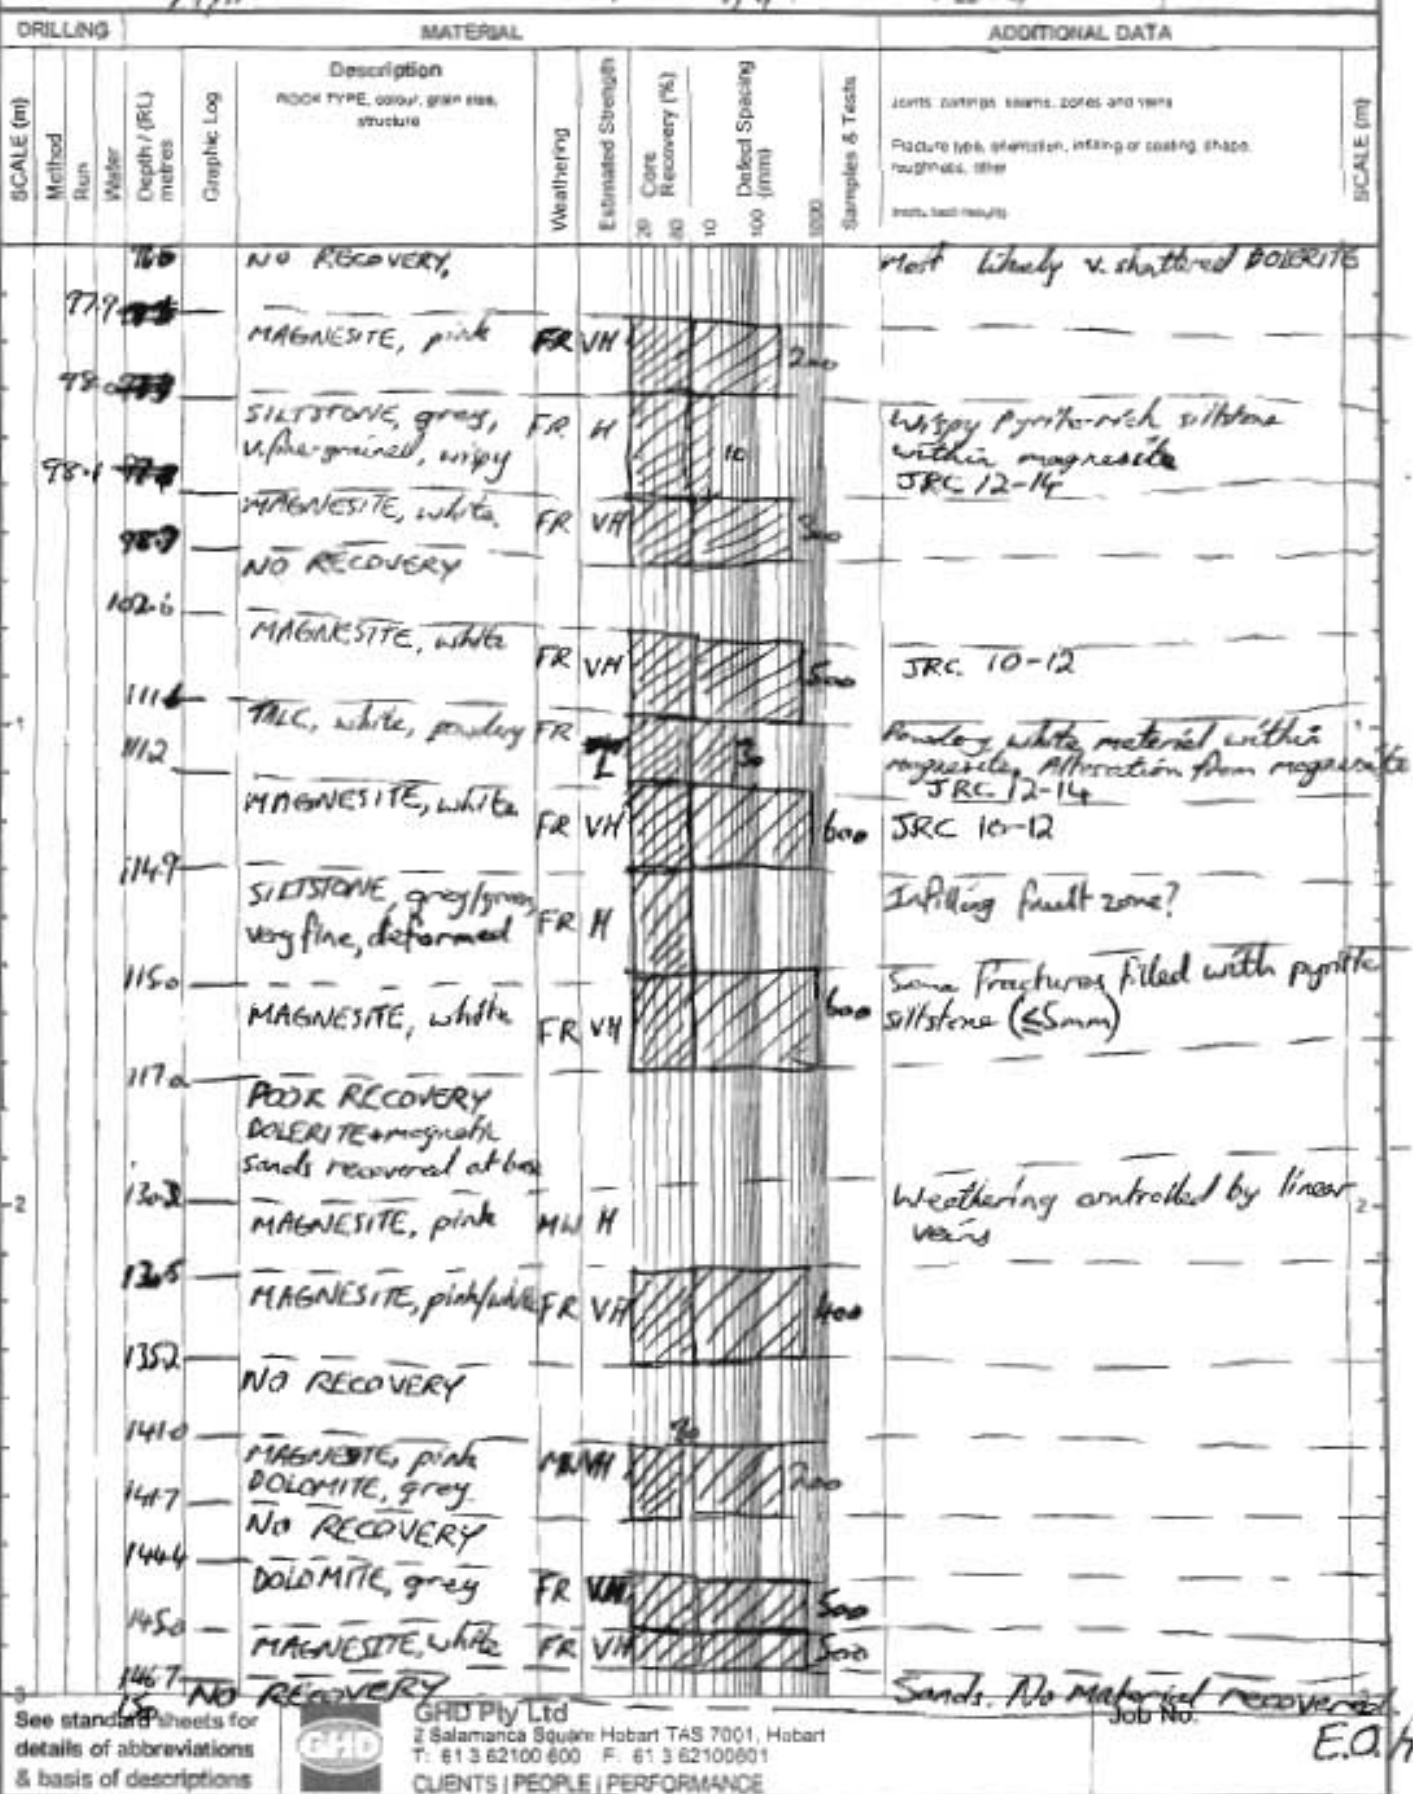 DRILLING MATERIAL ADDITIONAL DATA
SCALE (m)
Method
Run
Water
Depth / (RL) metres
Graphic Log
Description
ROCK TYPE, colour, grain size,
structure
Weathering
Estimated Strength
Core Recovery (%)
20 80
Defect Spacing (mm)
10 100 1000
Samples & Tests
Joints, partings, seams, zones and veins
Fracture type, orientation, infilling or coating, shape,
roughness, other
SCALE (m)
NO RECOVERY, Most likely v. shattered DOLERITE
97.9
MAGNESITE, pink FR VH 200
98.0
SILTSTONE, grey, FR H 10 Wispy Pyrite-rich siltstone
v.fine-grained, wispy within magnesite
98.1 JRC 12-14
MAGNESITE, white FR VH
98.7
NO RECOVERY
102.6
MAGNESITE, white FR VH 500 JRC 10-12
TALC, white, powdery FR L 30 Powdery white material within
1 magnesite. Alteration from magnesite
111.2 JRC 12-14
MAGNESITE, white FR VH 600 JRC 10-12
114.9
SILTSTONE, grey/green, FR H Infilling fault zone?
very fine, deformed
115.0 Some fractures filled with pyritic
MAGNESITE, white FR VH 600 siltstone (≤5mm)
117.0
POOR RECOVERY
DOLERITE + magnetic
sands recovered at base
2 Weathering controlled by linear 2
MAGNESITE, pink MW H veins
MAGNESITE, pink/white FR VH 400
135.2
NO RECOVERY
141.0
MAGNESITE, pink MW VH 200
DOLOMITE, grey
141.7
NO RECOVERY
144.4
DOLOMITE, grey FR VH 500
145.0
MAGNESITE, white FR VH 500
146.7
NO RECOVERY Sands. No Material recovered.
150
3
E.O.H
See standard sheets for
details of abbreviations
& basis of descriptions
GHD
GHD Pty Ltd
2 Salamanca Square Hobart TAS 7001, Hobart
T: 61 3 62100 600 F: 61 3 62100601
CLIENTS | PEOPLE | PERFORMANCE
Job No.